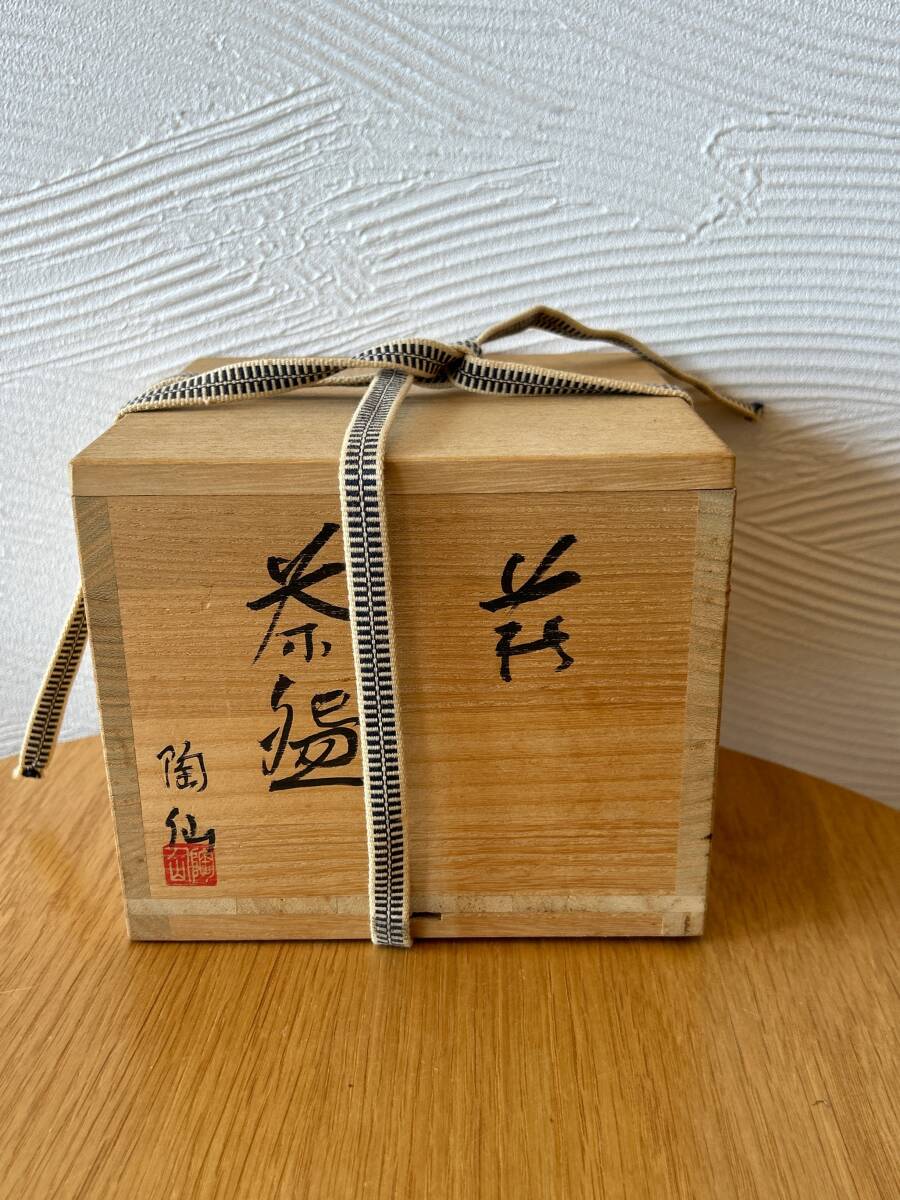 萩
茶盌
陶仙
陶仙